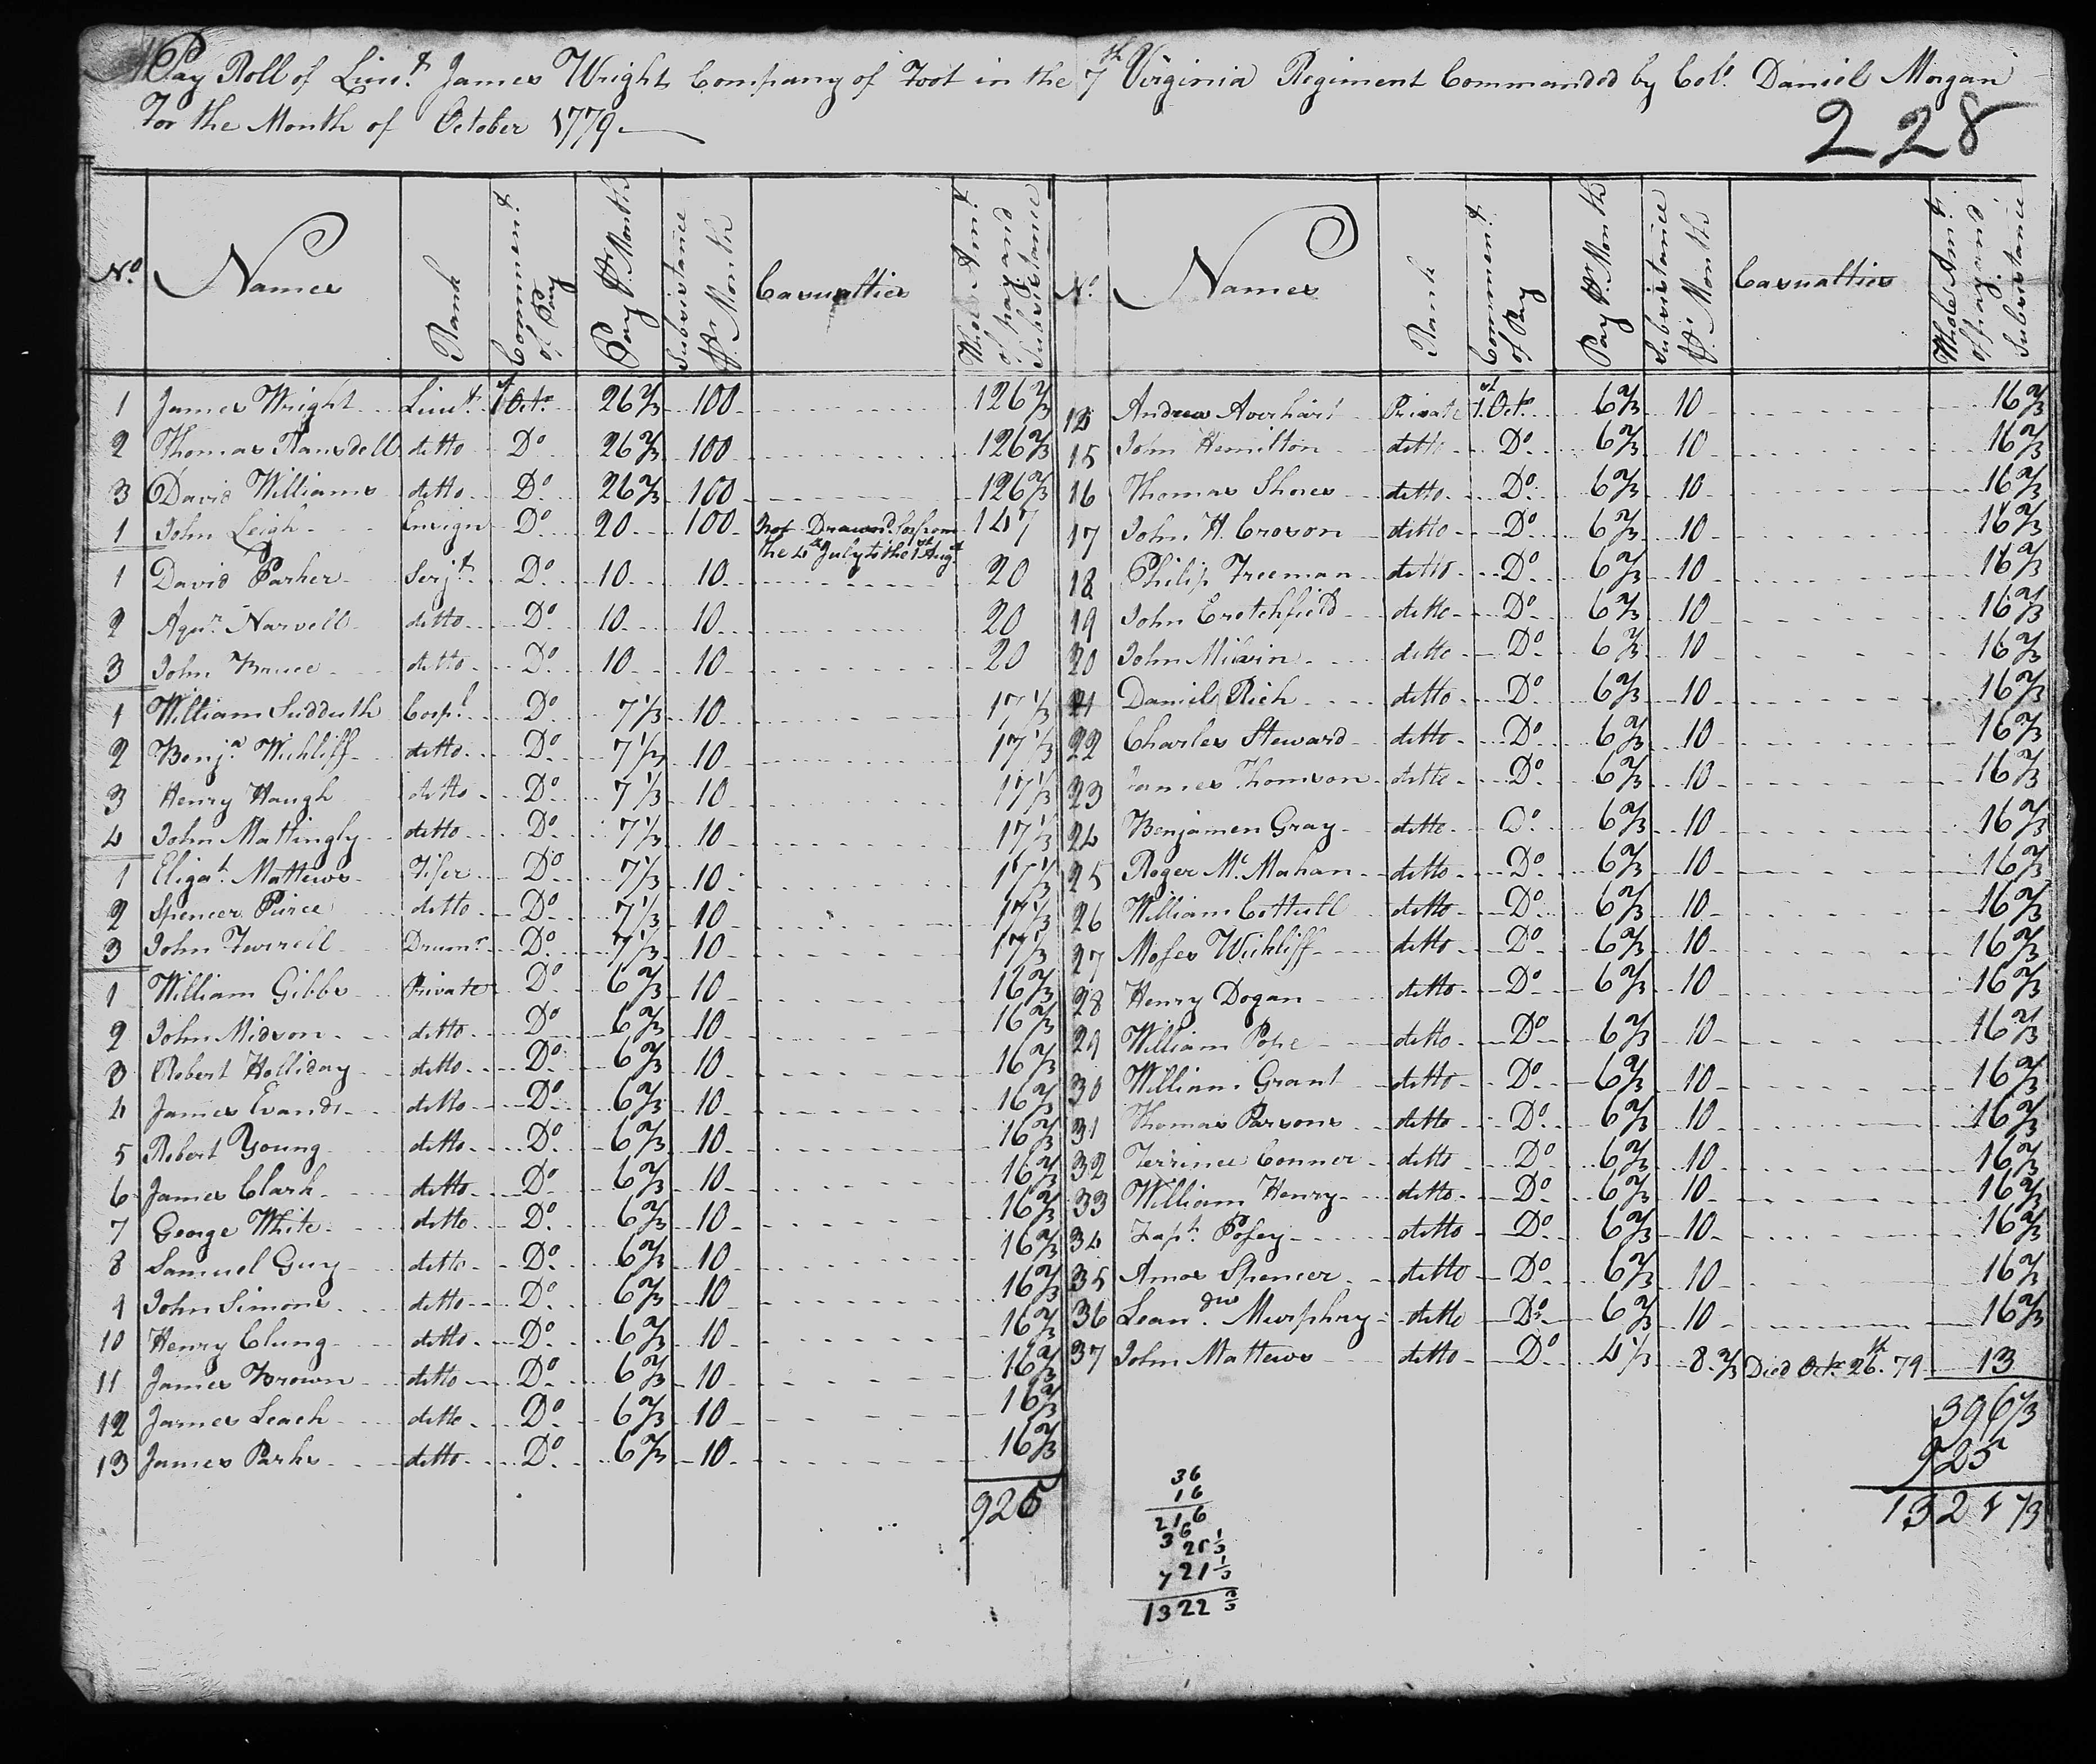 A Pay Roll of Lieut. James Wright Company of Foot in the 7th Virginia Regiment Commanded by Col. Daniel Morgan
For the Month of October 1779
228
No. Names Rank Commencmt. of Pay Pay Pr. Month Subsistance Pr. Month Casualties Whole Amt. of pay and Subsistance
1 James Wright Lieut. 1st Octr. 26 2/3 100 126 2/3
2 Thomas Ransdell ditto Do 26 2/3 100 126 2/3
3 David Williams ditto Do 26 2/3 100 126 2/3
1 John Leigh Ensign Do 20 100 Not Drawd. for from the 4th July to the 1st Augt. 147
1 David Parker Serjt. Do 10 10 20
2 Aqur. Narvell ditto Do 10 10 20
3 John Bruce ditto Do 10 10 20
1 William Sudduth Corpl. Do 7 1/3 10 17 1/3
2 Benja. Wickliff ditto Do 7 1/3 10 17 1/3
3 Henry Haugh ditto Do 7 1/3 10 17 1/3
4 John Mattingly ditto Do 7 1/3 10 17 1/3
1 Eligah. Mattews Fifer Do 7 1/3 10 17 1/3
2 Spencer Peirce ditto Do 7 1/3 10 17 1/3
3 John Turrell Drumr. Do 7 1/3 10 17 1/3
1 William Gibbs Private Do 6 2/3 10 16 2/3
2 John Midson ditto Do 6 2/3 10 16 2/3
3 Robert Holliday ditto Do 6 2/3 10 16 2/3
4 James Evands ditto Do 6 2/3 10 16 2/3
5 Robert Young ditto Do 6 2/3 10 16 2/3
6 James Clark ditto Do 6 2/3 10 16 2/3
7 George White ditto Do 6 2/3 10 16 2/3
8 Samuel Guy ditto Do 6 2/3 10 16 2/3
9 John Simons ditto Do 6 2/3 10 16 2/3
10 Henry Clung ditto Do 6 2/3 10 16 2/3
11 James Brown ditto Do 6 2/3 10 16 2/3
12 James Leach ditto Do 6 2/3 10 16 2/3
13 James Parks ditto Do 6 2/3 10 16 2/3
925
No. Names Rank Commencmt. of Pay Pay Pr. Month Subsistance Pr. Month Casualties Whole Amt. of pay and Subsistance
14 Andrew Averhart Private 1st Octr. 6 2/3 10 16 2/3
15 John Hemilton ditto Do 6 2/3 10 16 2/3
16 Thomas Shores ditto Do 6 2/3 10 16 2/3
17 John H. Croson ditto Do 6 2/3 10 16 2/3
18 Philip Freeman ditto Do 6 2/3 10 16 2/3
19 John Crotchfield ditto Do 6 2/3 10 16 2/3
20 John Milvin ditto Do 6 2/3 10 16 2/3
21 Daniel Rich ditto Do 6 2/3 10 16 2/3
22 Charles Steward ditto Do 6 2/3 10 16 2/3
23 James Thomson ditto Do 6 2/3 10 16 2/3
24 Benjamen Gray ditto Do 6 2/3 10 16 2/3
25 Roger Mc. Mahan ditto Do 6 2/3 10 16 2/3
26 William Cottrill ditto Do 6 2/3 10 16 2/3
27 Moses Wickliff ditto Do 6 2/3 10 16 2/3
28 Henry Dogan ditto Do 6 2/3 10 16 2/3
29 William Pope ditto Do 6 2/3 10 16 2/3
30 William Grant ditto Do 6 2/3 10 16 2/3
31 Thomas Parsons ditto Do 6 2/3 10 16 2/3
32 Terrince Conner ditto Do 6 2/3 10 16 2/3
33 William Henry ditto Do 6 2/3 10 16 2/3
34 Zaph. Posey ditto Do 6 2/3 10 16 2/3
35 Amos Spencer ditto Do 6 2/3 10 16 2/3
36 Leandw. Murphey ditto Do 6 2/3 10 16 2/3
37 John Mattews ditto Do 4 1/3 8 2/3 Died Octr. 26th. 79 13
396 1/3
925
1321 1/3
36
16
216
36
25 1/3
721 1/3
1322 2/3